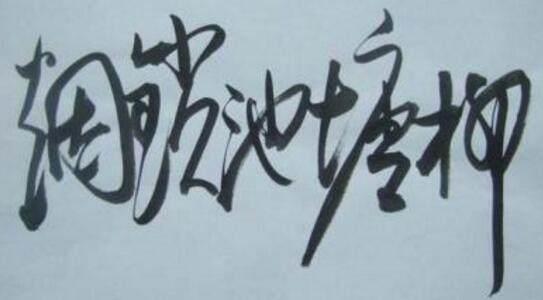 烟锁池塘柳